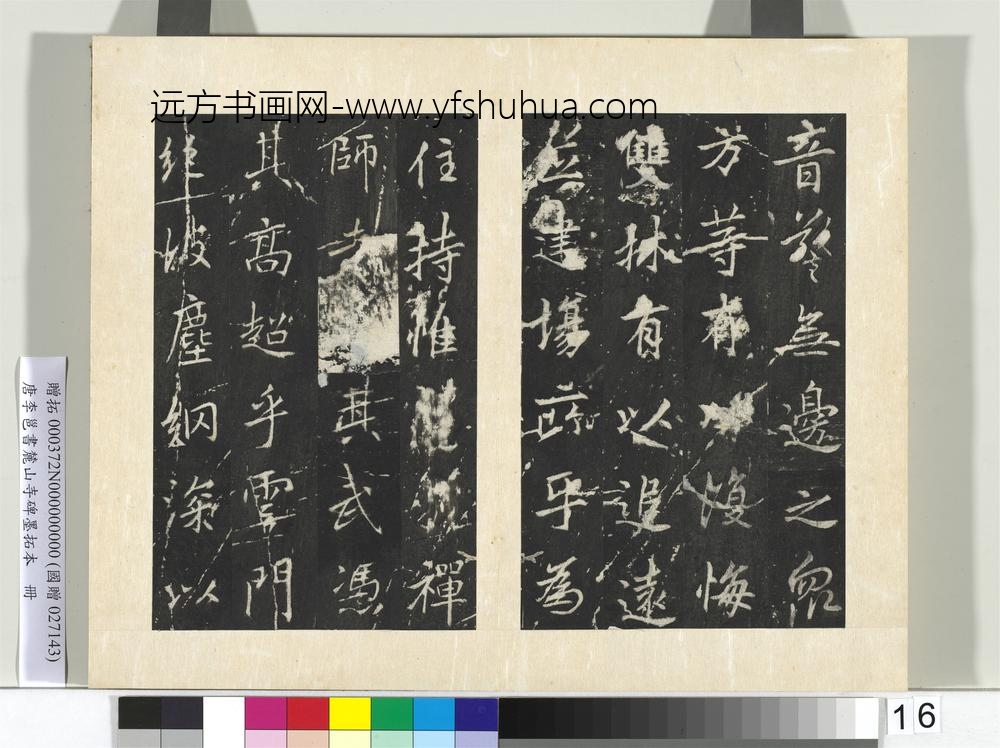 远方书画网-www.yfshuhua.com
音發無邊之眾
方等有復悔
雙林有以追遠
並建場所為
住持惟禪
師其武憑
其高超乎雲門
絕彼塵網深以
贈拓 000372N000000000 (國贈 027143)
唐李邕書麓山寺碑墨拓本 冊
16